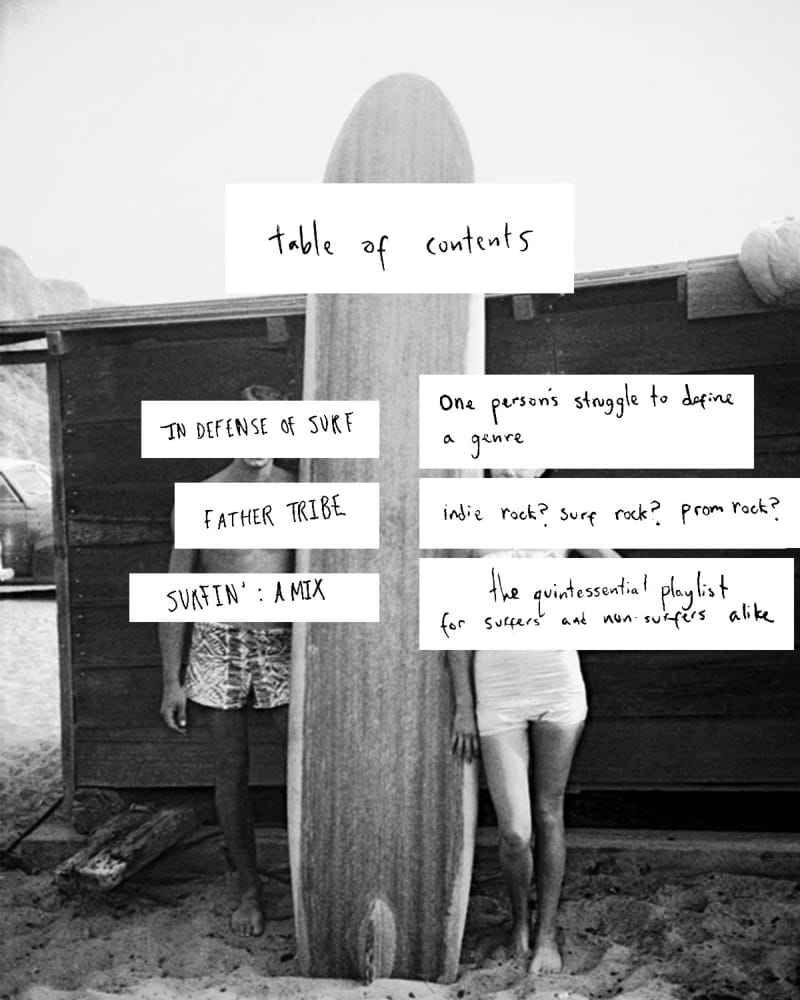 table of contents
IN DEFENSE OF SURF
One person's struggle to define
a genre
FATHER TRIBE
indie rock? surf rock? prom rock?
SURFIN': A MIX
the quintessential playlist
for surfers and non-surfers alike